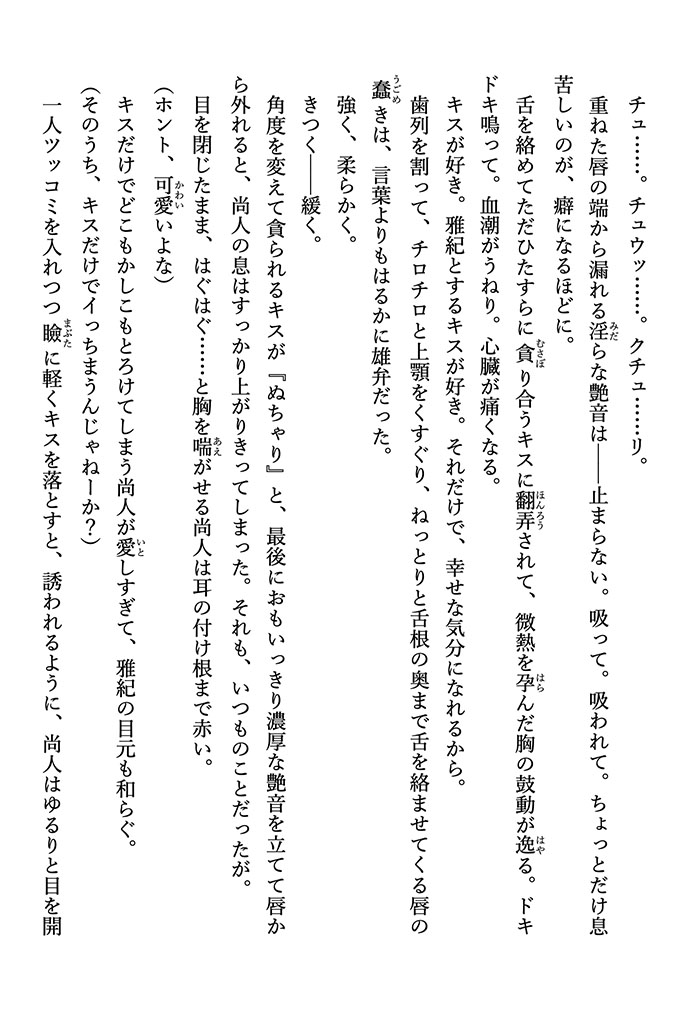 チュ……。チュウッ……。クチュ……リ。
重ねた唇の端から漏れる淫らな艶音は――止まらない。吸って。吸われて。ちょっとだけ息
苦しいのが、癖になるほどに。
舌を絡めてただひたすらに貪り合うキスに翻弄されて、微熱を孕んだ胸の鼓動が逸る。ドキ
ドキ鳴って。血潮がうねり。心臓が痛くなる。
キスが好き。雅紀とするキスが好き。それだけで、幸せな気分になれるから。
歯列を割って、チロチロと上顎をくすぐり、ねっとりと舌根の奥まで舌を絡ませてくる唇の
蠢きは、言葉よりもはるかに雄弁だった。
強く、柔らかく。
きつく――緩く。
角度を変えて貪られるキスが『ぬちゃり』と、最後におもいっきり濃厚な艶音を立てて唇か
ら外れると、尚人の息はすっかり上がりきってしまった。それも、いつものことだったが。
目を閉じたまま、はぐはぐ……と胸を喘がせる尚人は耳の付け根まで赤い。
(ホント、可愛いよな)
キスだけでどこもかしこもとろけてしまう尚人が愛しすぎて、雅紀の目元も和らぐ。
(そのうち、キスだけでイっちまうんじゃねーか?)
一人ツッコミを入れつつ瞼に軽くキスを落とすと、誘われるように、尚人はゆるりと目を開